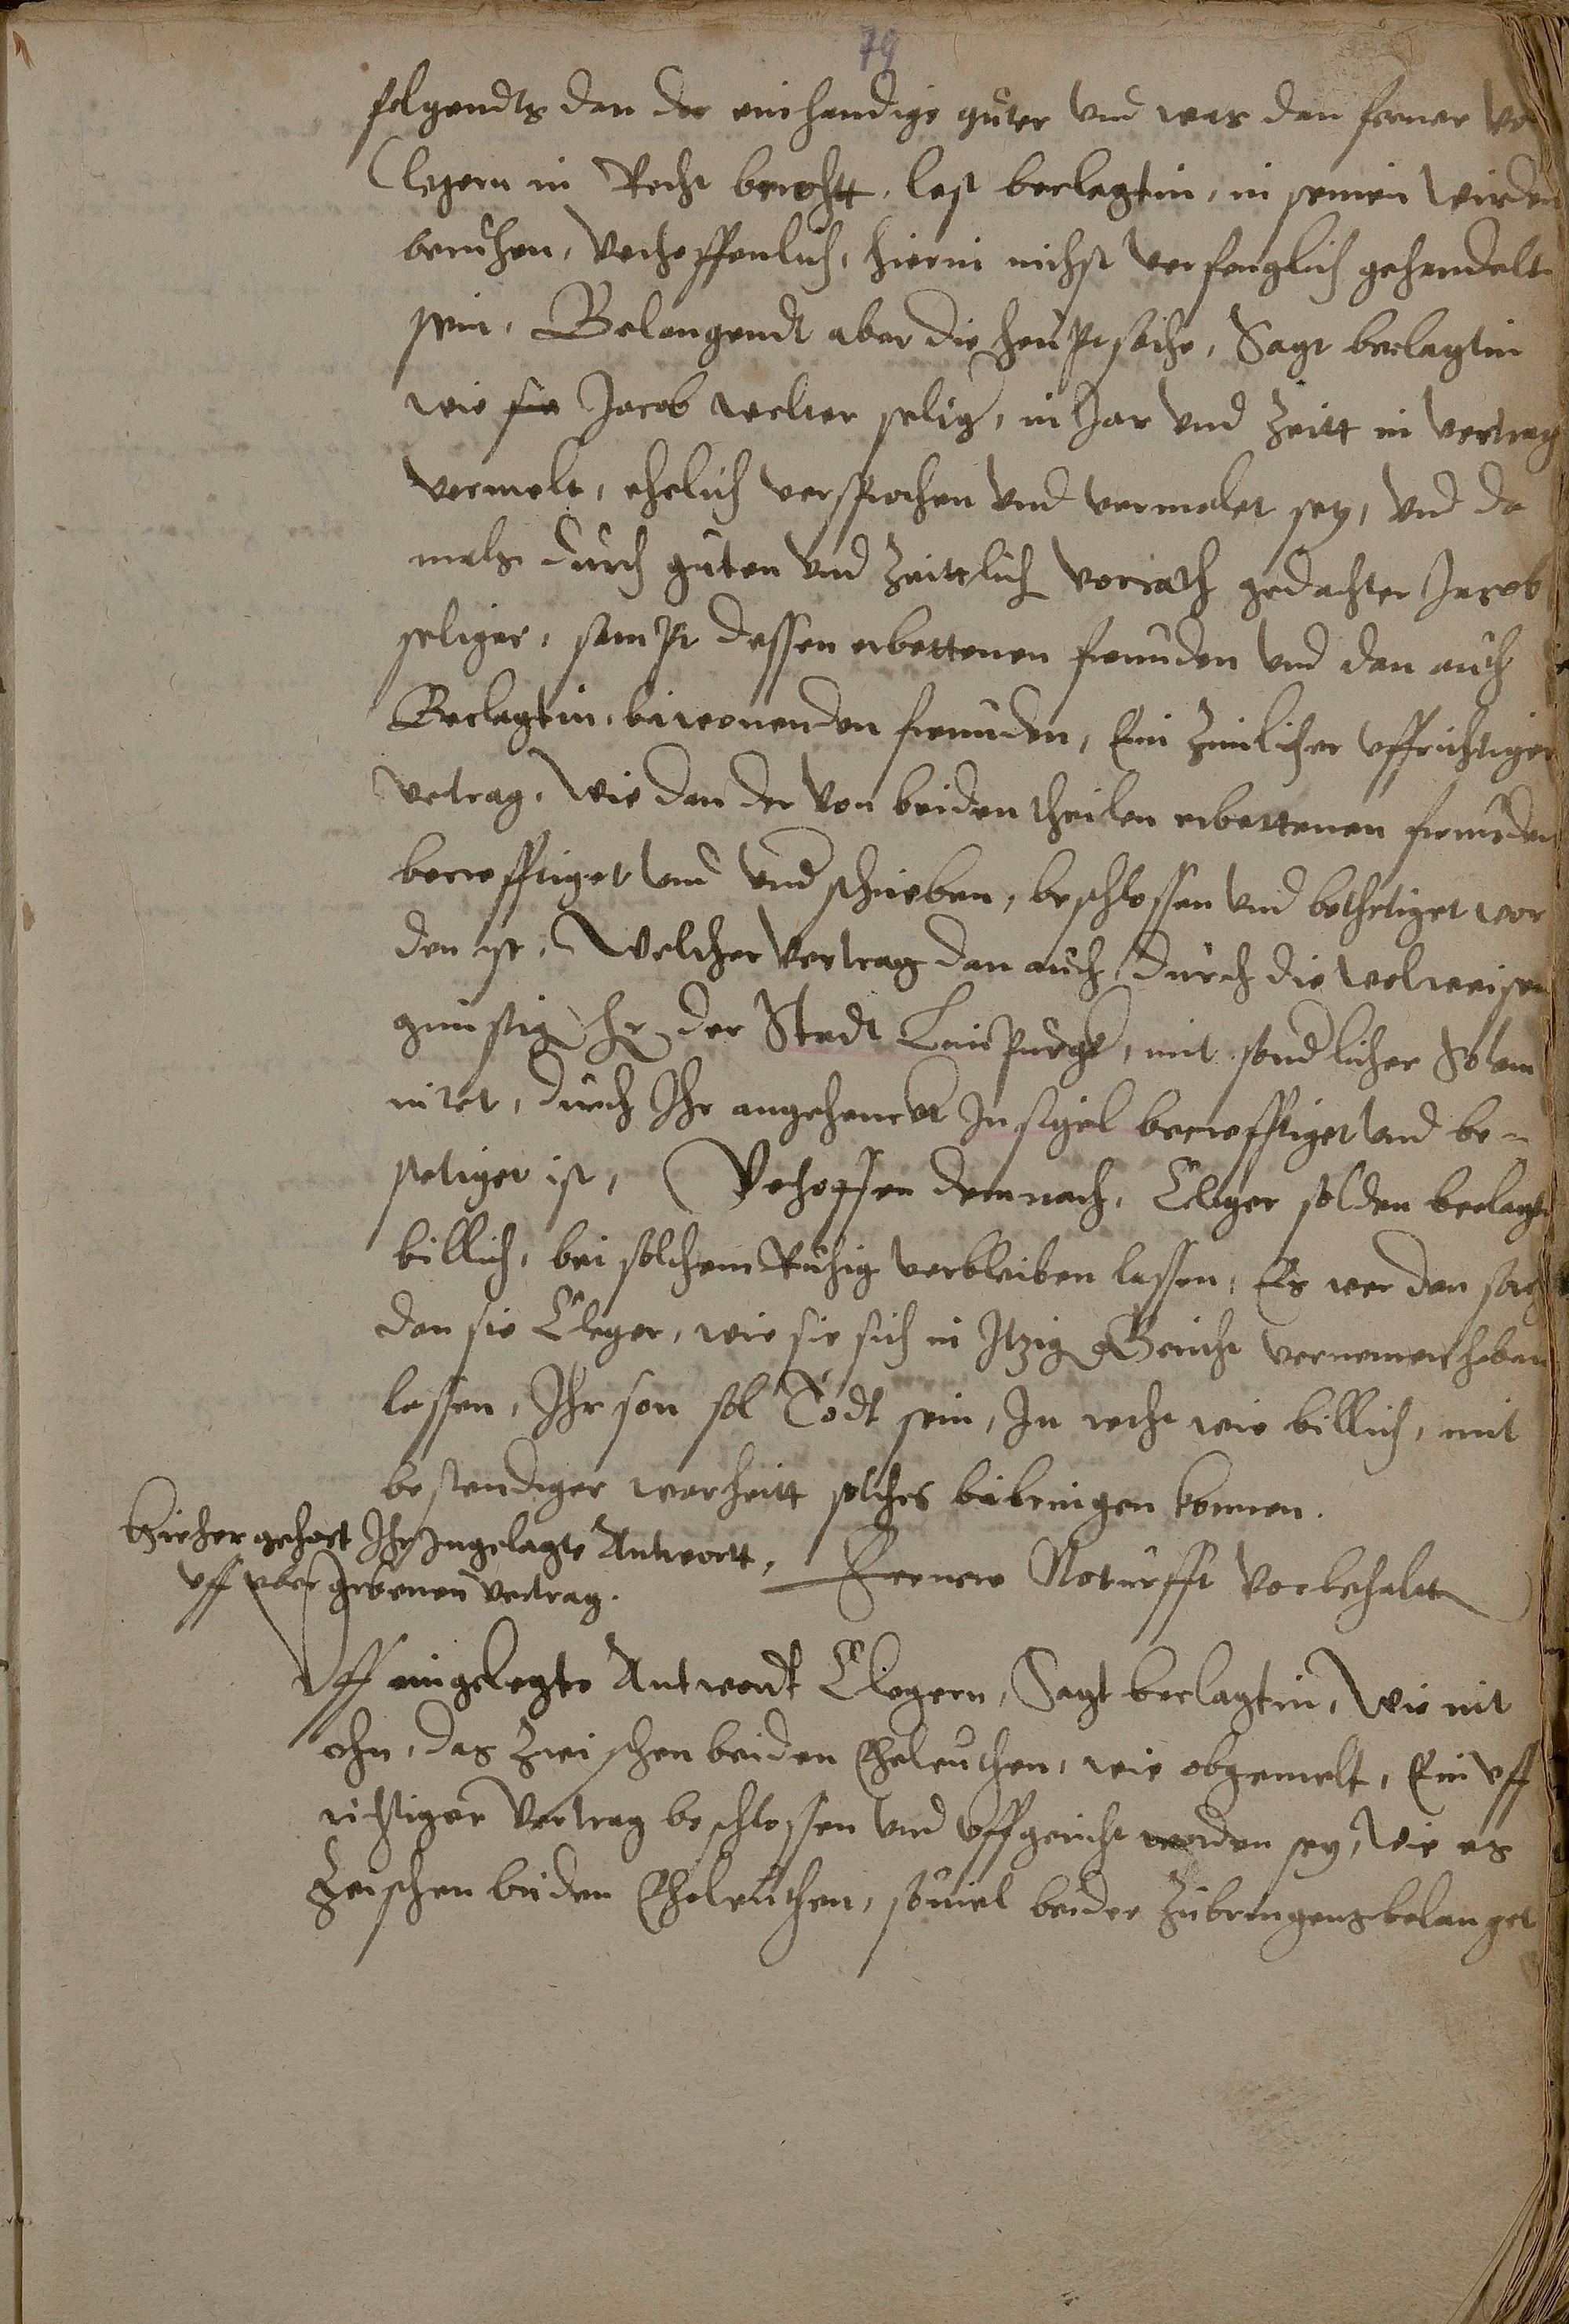 79
folgendts dan der einhendige guter vnd was dan ferner vo
Clegern in Recht bracht, lest beclagtin, in seinen wirden
beruhen, Verhoffenlich, hierin nichst verfenglich gehandelt
sein, Belangendt aber die heuptsache, Sagt beclagtin
wie sie Jacob welter selig, in Jar vnd Zeitt in vertrag
vermelt, ehelich versprochen vnd vermelet sey, vnd da
mals durch guten vnd Zeittlich vorrath gedachter Jacob
seliger, sampt dessen erbettenen freunden vnd dan auch
Beclagtin, biwonenden freunden, Ein Zimlicher vffrichtiger
vertrag, Wie dan der von beiden theilen erbettenen freunden
becrefftiget vnd vndschrieben, beschlossen vnd bethetiget wor
den ist, Welcher vertrag dan auch durch die wolweisen
gunstig Hr der Stadt, mit sondlicher Solem
nitet, durch Ihr angehenckt Insigel becrefftiget vnd be-
stetiget ist, Verhoffen demnach, Cleger solden beclagte
billich, bei solchem Ruhig verbleiben lassen, Es wer dan sach
dan sie Cleger, wie sie sich in Itzig Gericht vernemen haben
lassen, Ihr son sol Todt sein, In recht wie billich, mit
bestendiger warheitt solches bibringen konnen.
Hieher gehort Ihr Ingelagte Antwortt,
vff vbergebenen vertrag.
Fernere Noturfft vorbehalten
Vff eingelegte Antwordt Clegern, Sagt beclagtin, Wie nit
ohn, das Zwischen beiden Eheleuthen, wie obgemelt, Ein vff
richtiger Vertrag beschlossen vnd vffgericht worden sey, Wie es
Zwischen beiden Eheleuthen, souiel beider Zubringens belanget